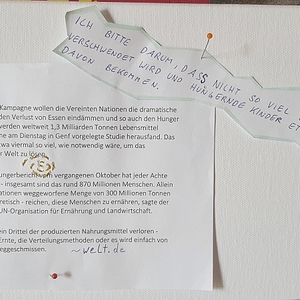 ICH BITTE DARUM, DASS NICHT SO VIEL
VERSCHWENDET WIRD UND HUNGERNDE KINDER ET
DAVON BEKOMMEN.
Kampagne wollen die Vereinten Nationen die dramatische
den Verlust von Essen eindämmen und so auch den Hunger
werden weltweit 1,3 Milliarden Tonnen Lebensmittel
ne am Dienstag in Genf vorgelegte Studie herausfand. Das
twa viermal so viel, wie notwendig wäre, um das
r Welt zu lösen.
ungerbericht vom vergangenen Oktober hat jeder Achte
- insgesamt sind das rund 870 Millionen Menschen. Allein
nationen weggeworfene Menge von 300 Millionen Tonnen
retisch - reichen, diese Menschen zu ernähren, sagte der
UN-Organisation für Ernährung und Landwirtschaft.
ein Drittel der produzierten Nahrungsmittel verloren -
Ernte, die Verteilungsmethoden oder es wird einfach von
eggeschmissen.
~welt.de